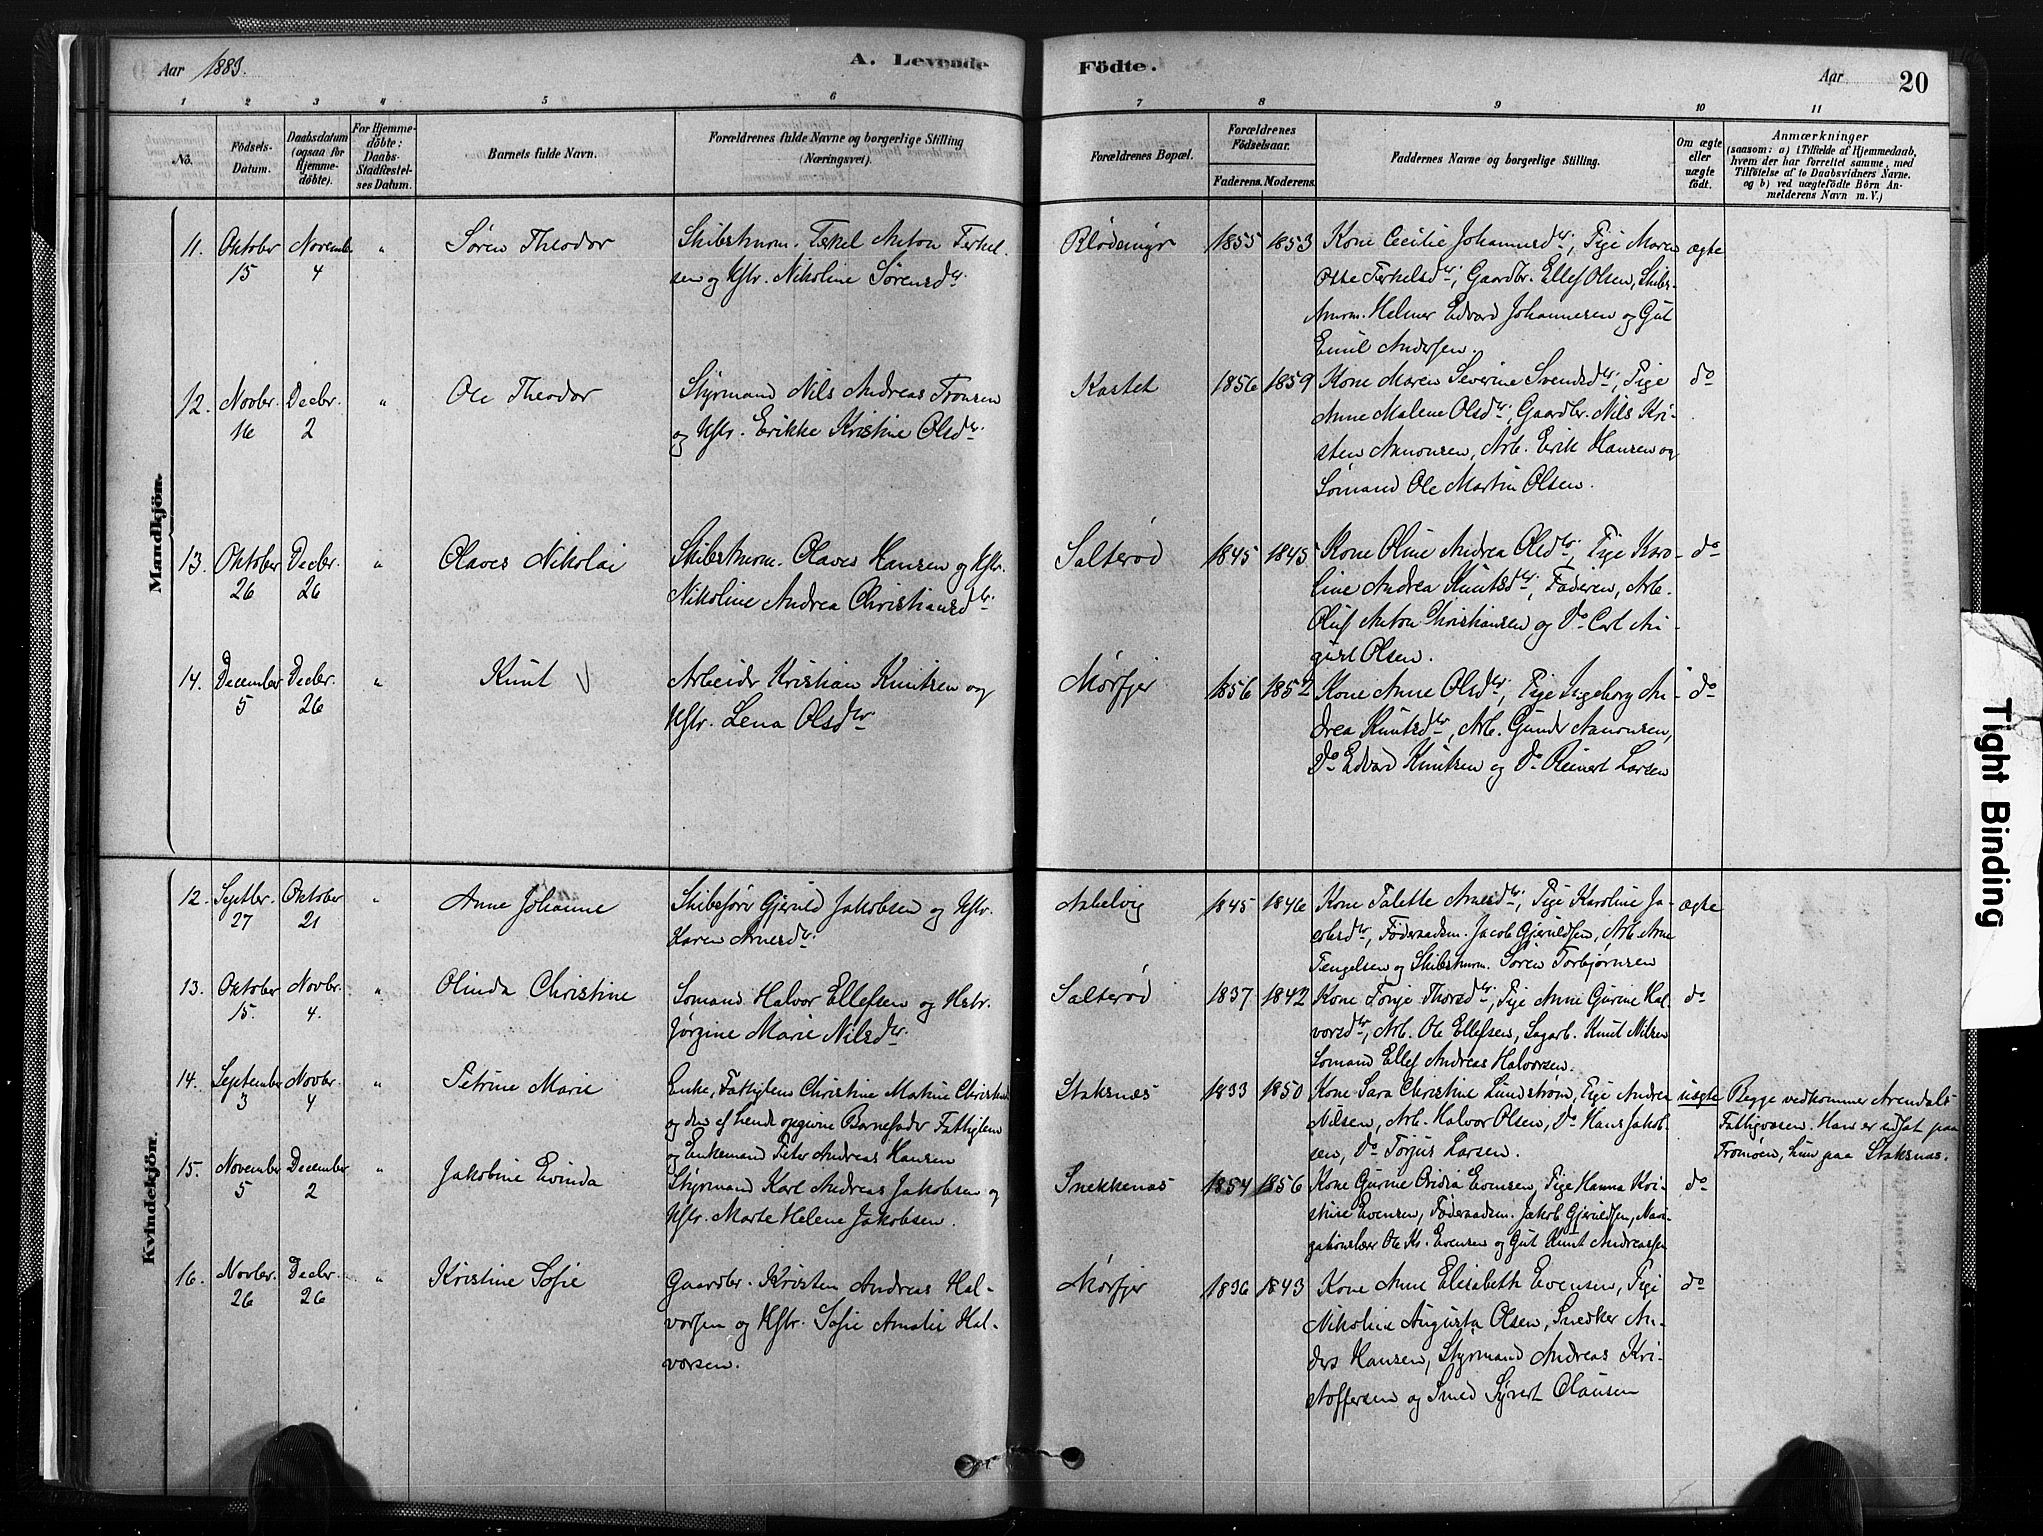 Aar 1883.
A. Levende Födte.
Aar 20
1 2 3 4 5 6 7 8 9 10 11
No.
Födsels-Datum.
Daabsdatum (ogsaa for Hjemme-döbte).
For Hjemme-döbte: Daabs-Stadfæstel-ses Datum.
Barnets fulde Navn.
Forældrenes fulde Navne og borgerlige Stilling (Næringsvei).
Forældrenes Bopæl.
Forældrenes Födselsaar.
Faderens. Moderens.
Faddernes Navne og borgerlige Stilling.
Om ægte eller uægte födt.
Anmærkninger
(saasom: a) i Tilfælde af Hjemmedaab,
hvem der har forrettet samme, med
Tilföielse af to Daabsvidners Navne,
og b) ved uægtefödte Börn An-
melderens Navn m. V.)
Mandkjön.
11. Oktober 15 November 4 " Søren Theodor
Skibstmrm. Terkel Anton Terkel-
sen og Hstr. Nikoline Sørensdtr.
Blødemyr 1855 1853
Kone Cecilie Johannesdtr., Pige Maren
Osse Terkelsdtr., Gaardbr. Ellef Olsen, Skibs-
tmrm. Helmer Edvard Johannesen og Gut
Emil Andersen.
ægte
12. Novbr. 16 Decbr. 2 " Ole Theodor
Styrmand Nils Andreas Tronsen
og Hstr. Erikke Kristine Olsdtr.
Kastet 1856 1859
Kone Maren Severine Svendsdtr., Pige
Anne Malene Olsdtr., Gaardbr. Nils Kri-
sten Aanonsen, Arb. Erik Hansen og
Sømand Ole Martin Olsen.
do
13. Oktober 26 Decbr. 26 " Olaves Nikolai
Skibstmrm. Olaves Hansen og Hstr.
Nikoline Andrea Christiansdtr.
Salterød 1845 1845
Kone Oline Andrea Olsdtr., Pige Karo-
line Andrea Knutsdtr., Faderen, Arb.
Oluf Anton Christiansen og Do Carl Au-
gust Olsen.
do
14. December 5 Decbr. 26 " Knut
Arbeider Kristian Knutsen og
Hstr. Lena Olsdtr.
Mørfjer 1856 1852
Kone Anne Olsdtr., Pige Ingeborg An-
drea Knutsdtr., Arb. Gunder Aanonsen,
Do Edvard Knutsen og Do Reinert Larsen
do
Kvindekjön.
12. Septbr. 27 Oktober 21 " Anne Johanne
Skibsfører Gjeruld Jakobsen og Hstr.
Karen Arnesdtr.
Nabelvig 1845 1846
Kone Talette Arnesdtr., Pige Karoline Ja-
cobsdtr., Föderaadsm. Jacob Gjeruldsen, Arb. Arne
Tengelsen og Skibstmrm. Søren Torbjørnsen
ægte
13. Oktober 15. Novbr. 4. " Olinda Christine
Sømand Halvor Ellefsen og Hstr.
Jørgine Marie Nilsdtr.
Salterød 1837 1842
Kone Tonje Thorsdtr., Pige Anne Gurine Hal-
vorsdtr., Arb. Ole Ellefsen, Sagarb. Knut Nilsen
Sømand Ellef Andreas Halvorsen.
do
14. September 3 Novbr. 4 " Petrine Marie
Enke, Fattiglem Christine Matine
og den af hende opgivne Barnefader Fattiglem
og Enkemand Peter Andreas Hansen
Staksnæs 1833 1850
Kone Sara Christine Lundstrøm, Pige Andrea
Nilsen, Arb. Halvor Olsen, Do Hans Jakob-
sen, Do Torjus Larsen.
uægte
Begge vedkommer Arendals
Fattigvæsen. Han er udsat paa
Tromøen, hun paa Staksnæs.
15. November 5 December 2 " Jakobine Evinda
Styrmand Karl Andreas Jakobsen og
Hstr. Marte Helene Jakobsen.
Snekkenæs 1854 1856
Kone Gurine Evensen, Pige Hanna Kri-
stine Evensen, Föderaadsm. Jakob Gjeruldsen, Navi-
gationslærer Ole Kr. Evensen og Gut Knut Andreassen
do
16. Novbr. 26 Decbr. 26 " Kristine Sofie
Gaardbr. Kristen Andreas Hal-
vorsen og Hstr. Sofie Amalie Hal-
vorsen.
Mørfjer 1836 1843
Kone Anne Elisabeth Evensen, Pige
Nikoline Augusta Olsen, Snedker An-
ders Hansen, Styrmand Andreas Kri-
stoffersen og Smed Syvert Olausen
do
Tight Binding